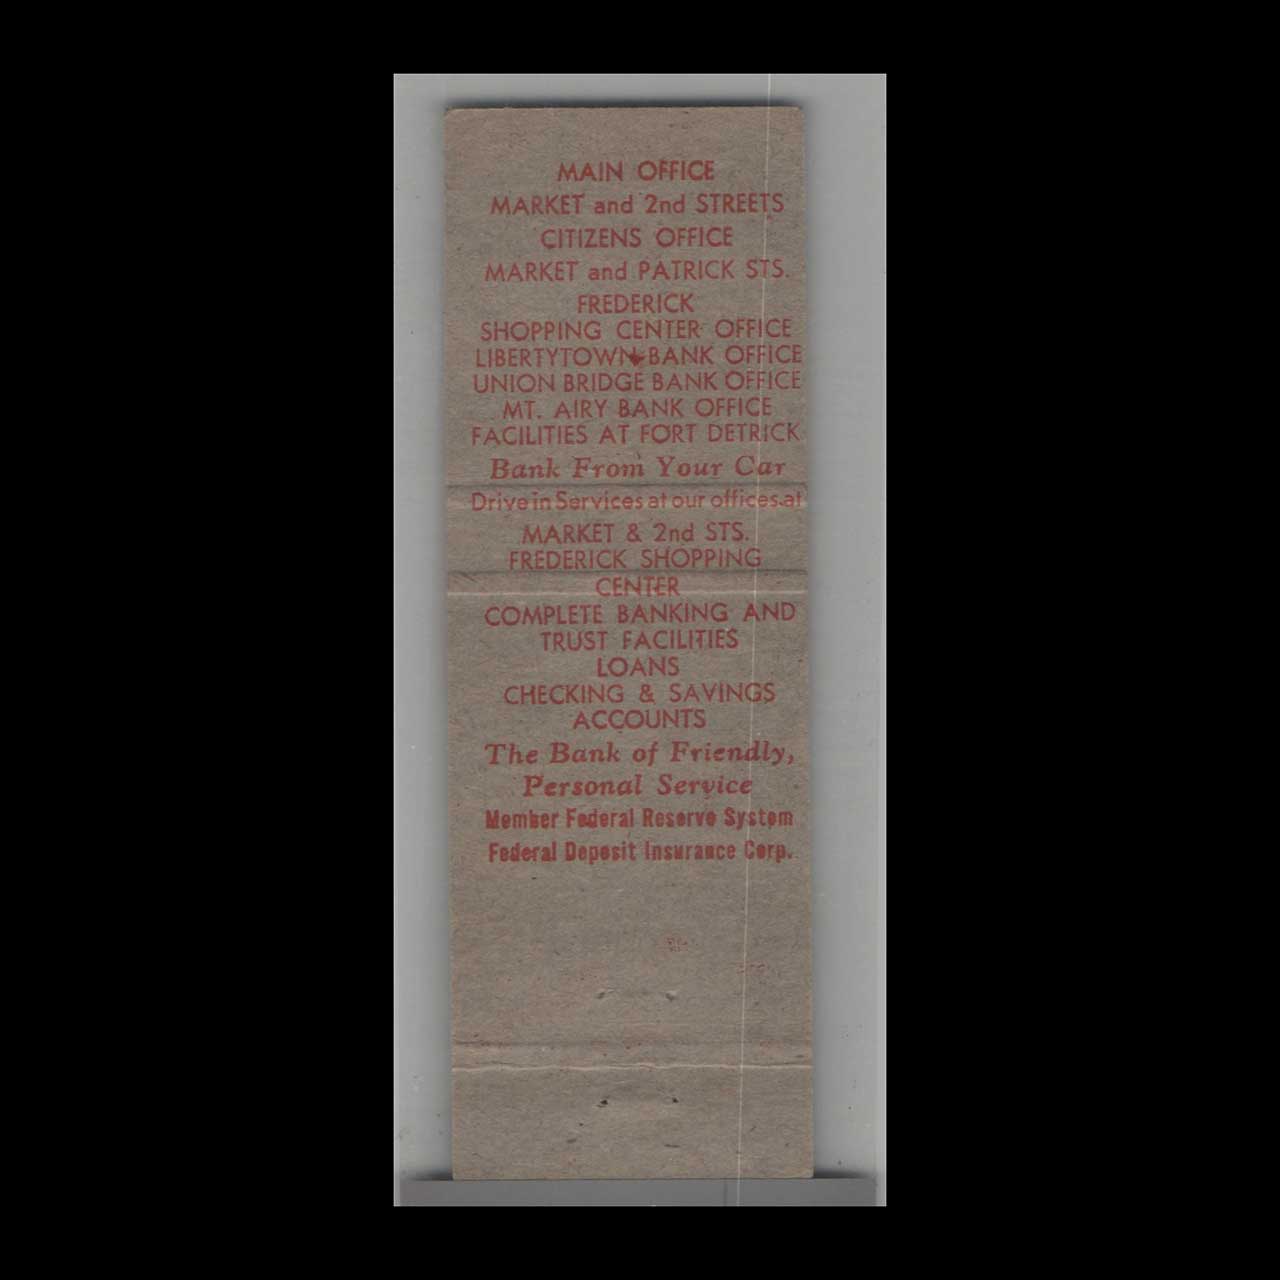 MAIN OFFICE
MARKET and 2nd STREETS
CITIZENS OFFICE
MARKET and PATRICK STS.
FREDERICK
SHOPPING CENTER OFFICE
LIBERTYTOWN BANK OFFICE
UNION BRIDGE BANK OFFICE
MT. AIRY BANK OFFICE
FACILITIES AT FORT DETRICK
Bank From Your Car
Drive in Services at our offices at
MARKET & 2nd STS.
FREDERICK SHOPPING
CENTER
COMPLETE BANKING AND
TRUST FACILITIES
LOANS
CHECKING & SAVINGS
ACCOUNTS
The Bank of Friendly,
Personal Service
Member Federal Reserve System
Federal Deposit Insurance Corp.